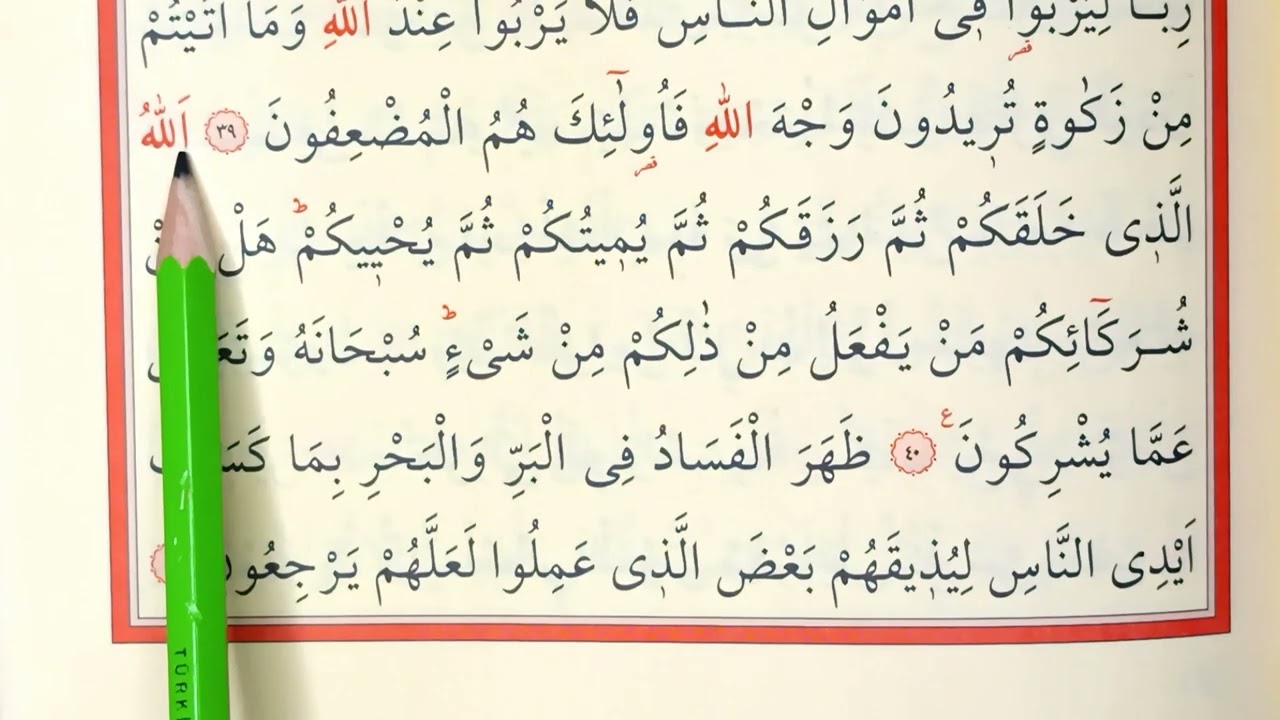 رِبًا لِيَرْبُوَا فِى اَمْوَالِ النَّاسِ فَلَا يَرْبُوا عِنْدَ اللّٰهِ وَمَا اٰتَيْتُمْ
قصر
مِنْ زَكٰوةٍ تُرِيدُونَ وَجْهَ اللّٰهِ فَاُو۬لٰٓئِكَ هُمُ الْمُضْعِفُونَ ٣٩ اَللّٰهُ
قصر
الَّذِى خَلَقَكُمْ ثُمَّ رَزَقَكُمْ ثُمَّ يُمِيتُكُمْ ثُمَّ يُحْيِيكُمْ ط هَلْ
شُرَكَٓائِكُمْ مَنْ يَفْعَلُ مِنْ ذٰلِكُمْ مِنْ شَىْءٍ ط سُبْحَانَهُ
عَمَّا يُشْرِكُونَ ع ٤٠ ظَهَرَ الْفَسَادُ فِى الْبَرِّ وَالْبَحْرِ بِمَا
اَيْدِى النَّاسِ لِيُذِيقَهُمْ بَعْضَ الَّذِى عَمِلُوا لَعَلَّهُمْ يَرْجِعُونَ